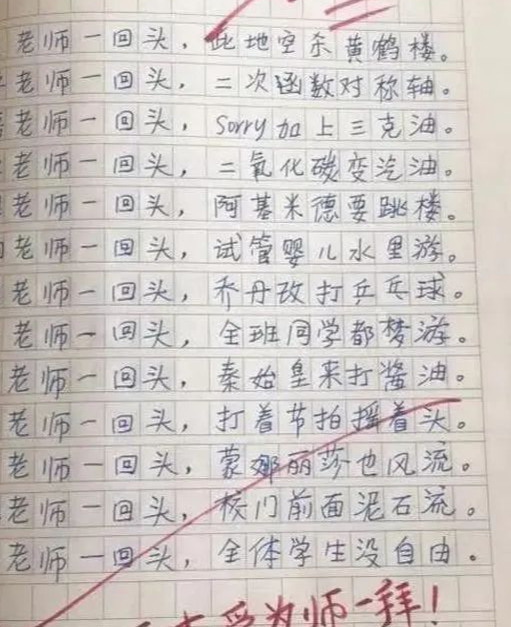 老师一回头，此地空杀黄鹤楼。
老师一回头，二次函数对称轴。
老师一回头，Sorry加上三克油。
老师一回头，二氧化碳变汽油。
老师一回头，阿基米德要跳楼。
老师一回头，试管婴儿水里游。
老师一回头，乔丹改打乒乓球。
老师一回头，全班同学都梦游。
老师一回头，秦始皇来打酱油。
老师一回头，打着节拍摇着头。
老师一回头，蒙娜丽莎也风流。
老师一回头，校门前面泥石流。
老师一回头，全体学生没自由。
受为师一拜！